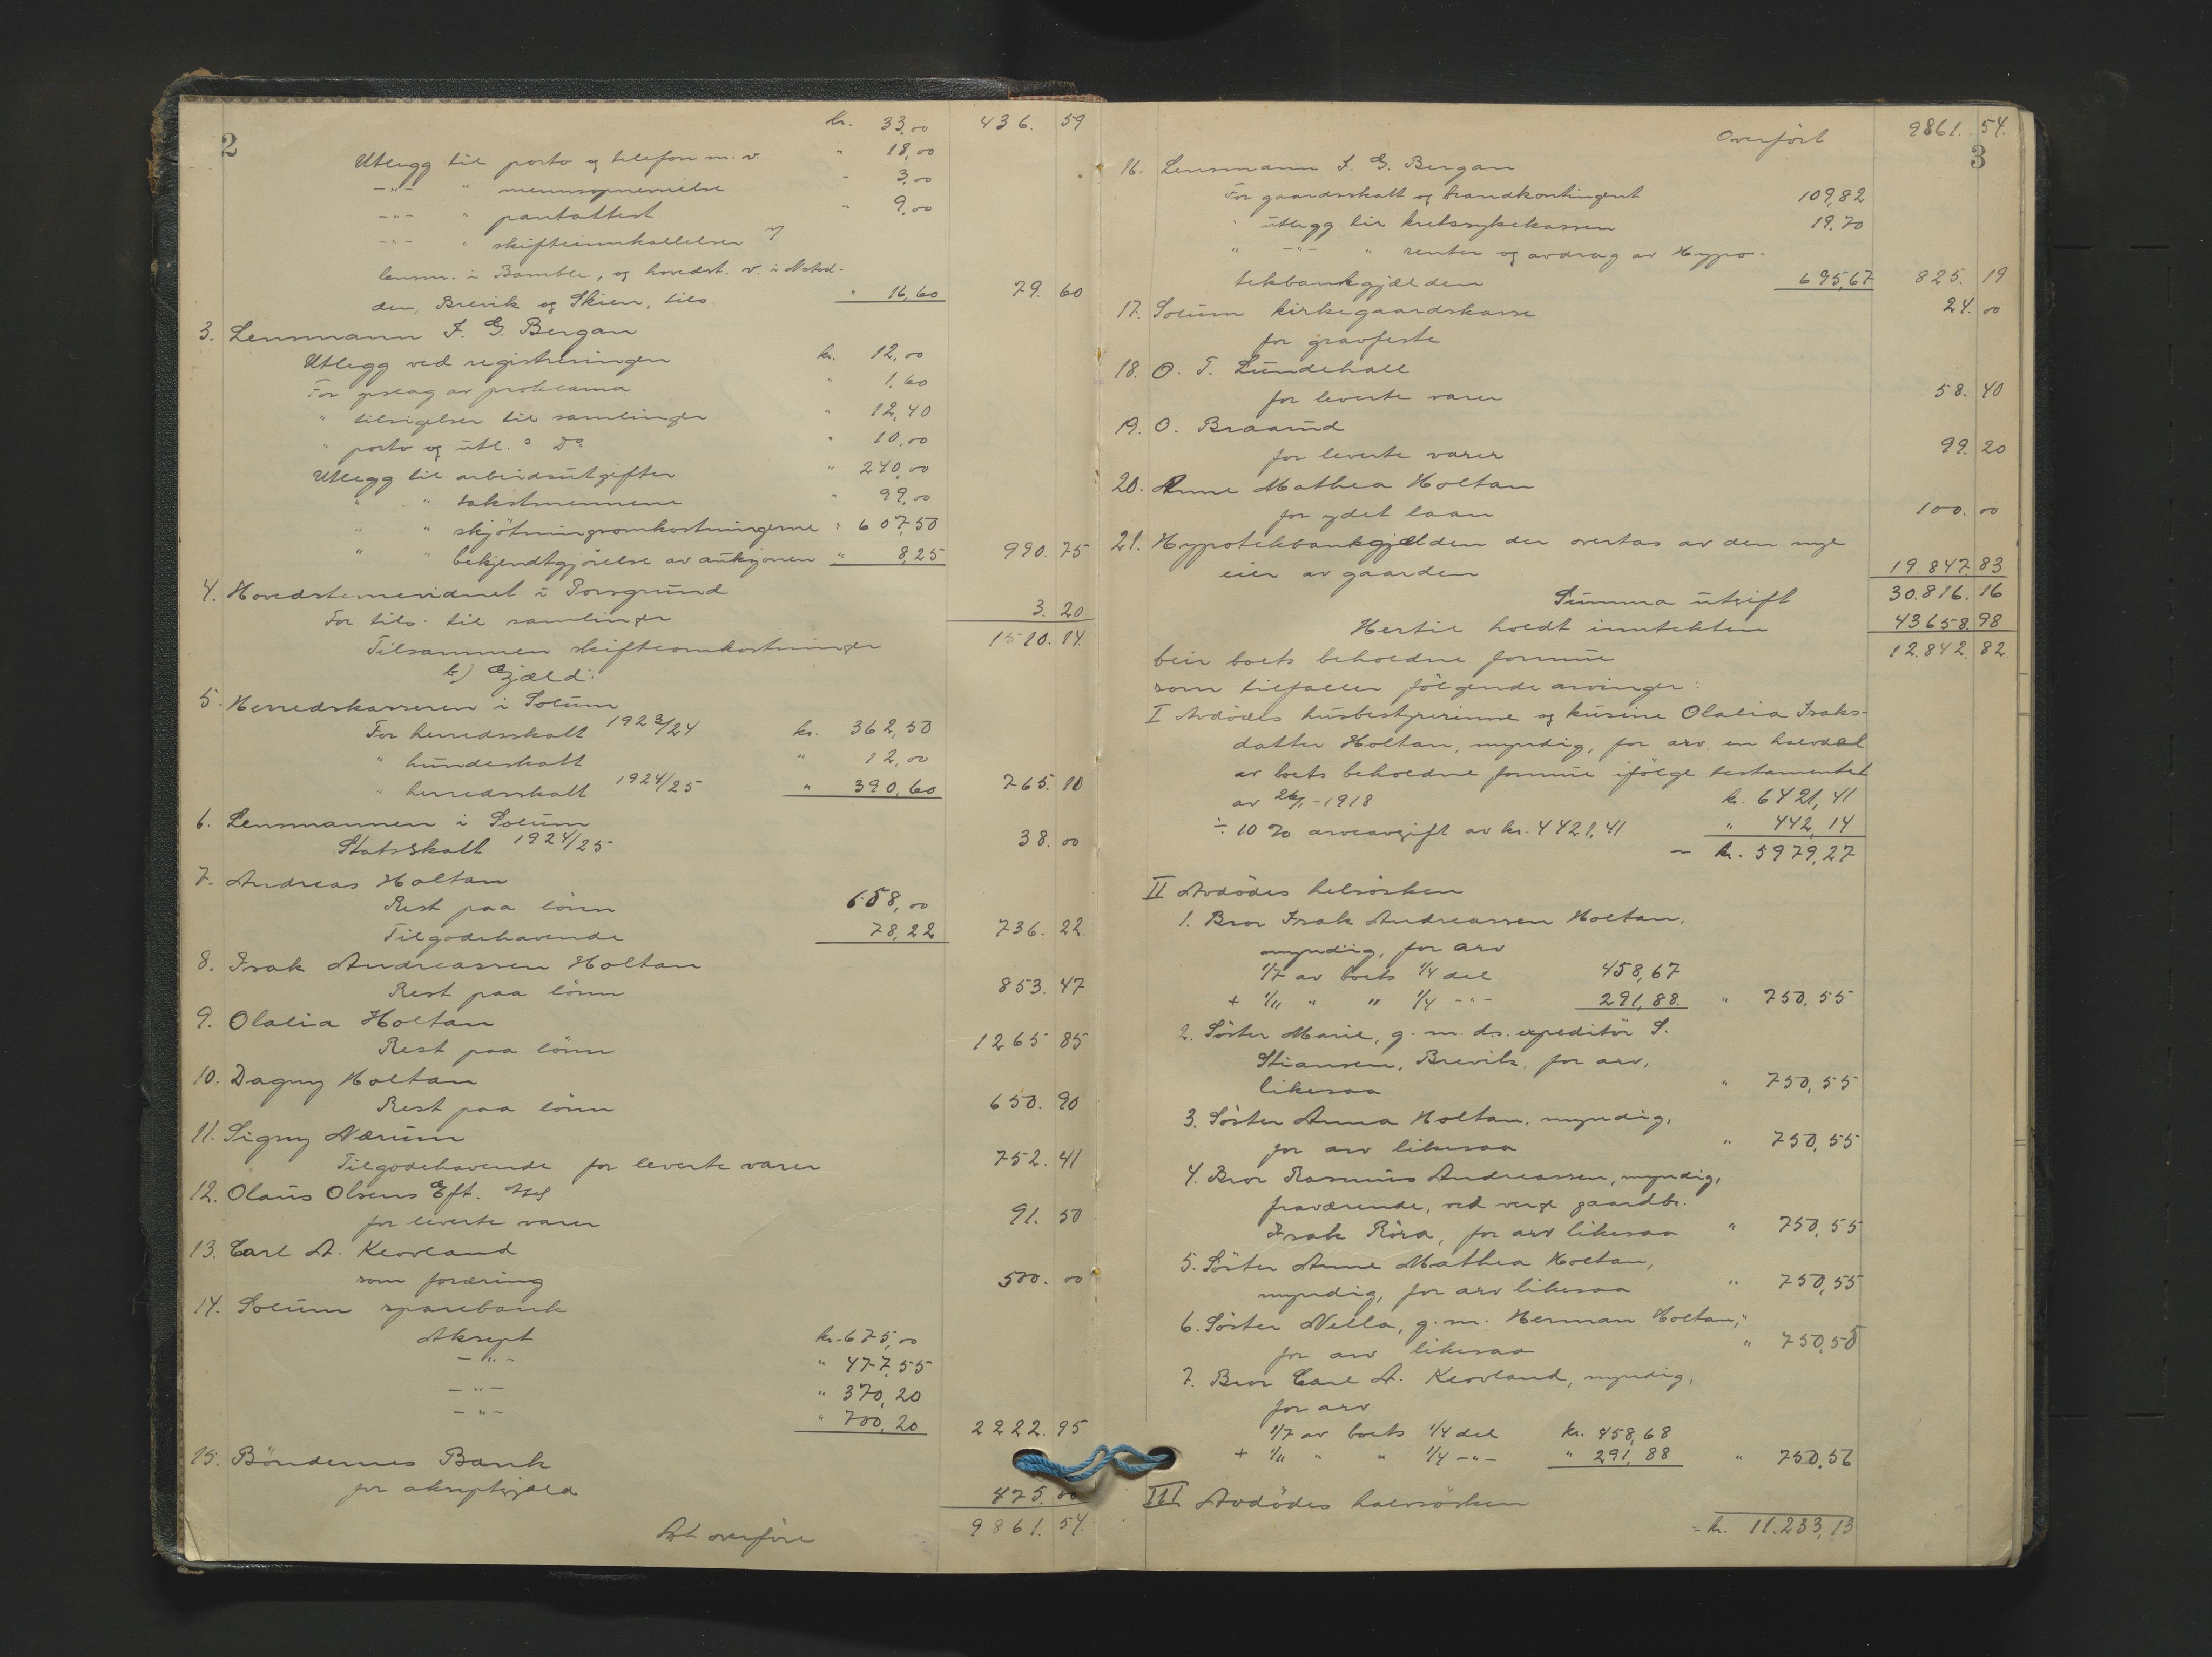 2
kr. 33,00 436. 59
Utlegg til porto og telefon m. v. " 18,00
-"- " mennsopnevnelse " 3,00
-"- " pantattest " 9,00
-"- " skifteinnkallelser
lensm. i Bamble, og hovedst. v. i Notod-
den, Brevik og Skien, tils. " 16,60 79. 60
3. Lensmann F. G. Bergan
Utlegg ved registreringen kr. 12,00
For opslag av proklama " 1.60
" tilsigelser til samlinger " 12,40
" porto og utl. Do " 10,00
Utlegg til arbeidsutgifter " 240,00
" " takstmennene " 99,00
" " skjötningsomkostningerne " 607,50
" " bekjendtgjörelse av auksjonen " 8,25 990. 75
4. Hovedstevnevidnet i Porsgrund
For tils. til samlinger 3. 20
Tilsammen skifteomkostninger 1510. 14.
b) Gjæld:
5. Herredskasseren i Solum
For herredsskatt 1923/24 kr. 362,50
" hundeskatt " 12,00
" herredsskatt 1924/25 " 390,60 765. 10
6. Lensmannen i Solum
Statsskatt 1924/25 38. 00
7. Andreas Holtan
Rest paa lönn 658,00
Tilgodehavende 78,22 736. 22.
8. Isak Andreassen Holtan
Rest paa lönn 853. 47
9. Olalia Holtan
Rest paa lönn 1265 85
10. Dagny Holtan
Rest paa lönn 650. 90
11. Signy Nærum
Tilgodehavende for leverte varer 752. 41
12. Olaus Olsens Eft.
for leverte varer 91. 50
13. Carl A. Klovland
som foræring 500. 00
14. Solum sparebank
Aksept kr. 675,00
-"- " 477,55
-"- " 370,20
-"- " 700,20 2222. 95
15. Böndernes Bank
for akseptgjæld 475. 00
At overföre 9861. 54.
3
Overfört 9861. 54.
16. Lensmann F. G. Bergan
For gaardsskatt og brandkontingent 109,82
" utlegg til kretssykekassen 19.70
" -"- " renter og avdrag av Hypo-
tekbankgjælden 695,67 825. 19
17. Solum kirkegaardskasse 24. 00
for gravfeste
18. O. T. Lundehall
for leverte varer 58. 40
19. O. Braarud
for leverte varer 99. 20
20. Anne Mathea Holtan
for ydet laan 100. 00
21. Hypotekbankgjælden der overtas av den nye
eier av gaarden 19.847. 83
Summa utgift 30.816. 16
Hertil holdt inntekten 43658. 98
blir boets beholdne formue 12.842. 82
som tilfaller fölgende arvinger:
I Avdödes husbestyrerinne og kusine Olalia Isaks-
datter Holtan, myndig, for arv en halvdel
av boets beholdne formue ifölge testamentet
av 26/1-1918 kr. 6421,41
÷ 10 % arveavgift av kr. 4421,41 " 442,14
- kr. 5979,27
II Avdödes helsösken
1. Bror Isak Andreassen Holtan,
myndig, for arv
1/7 av boets 1/4 del 458,67
+ 1/11 " " 1/4 -"- 291,88. " 750,55
2. Söster Marie, g. m. ds. expeditör S.
Stiansen, Brevik, for arv,
likesaa " 750,55
3. Söster Anna Holtan, myndig,
for arv likesaa " 750,55
4. Bror Rasmus Andreassen, myndig,
fraværende, ved verge gaardbr.
Isak Röra, for arv likesaa " 750,55
5. Söster Anne Mathea Holtan,
myndig, for arv likesaa " 750,55
6. Söster Nella, g. m. Herman Holtan,
for arv likesaa " 750,55
7. Bror Carl A. Klovland, myndig,
for arv
1/7 av boets 1/4 del kr. 458,68
+ 1/11 " " 1/4 -"- " 291,88 " 750,56
III Avdödes halvsösken
- kr. 11.233,13